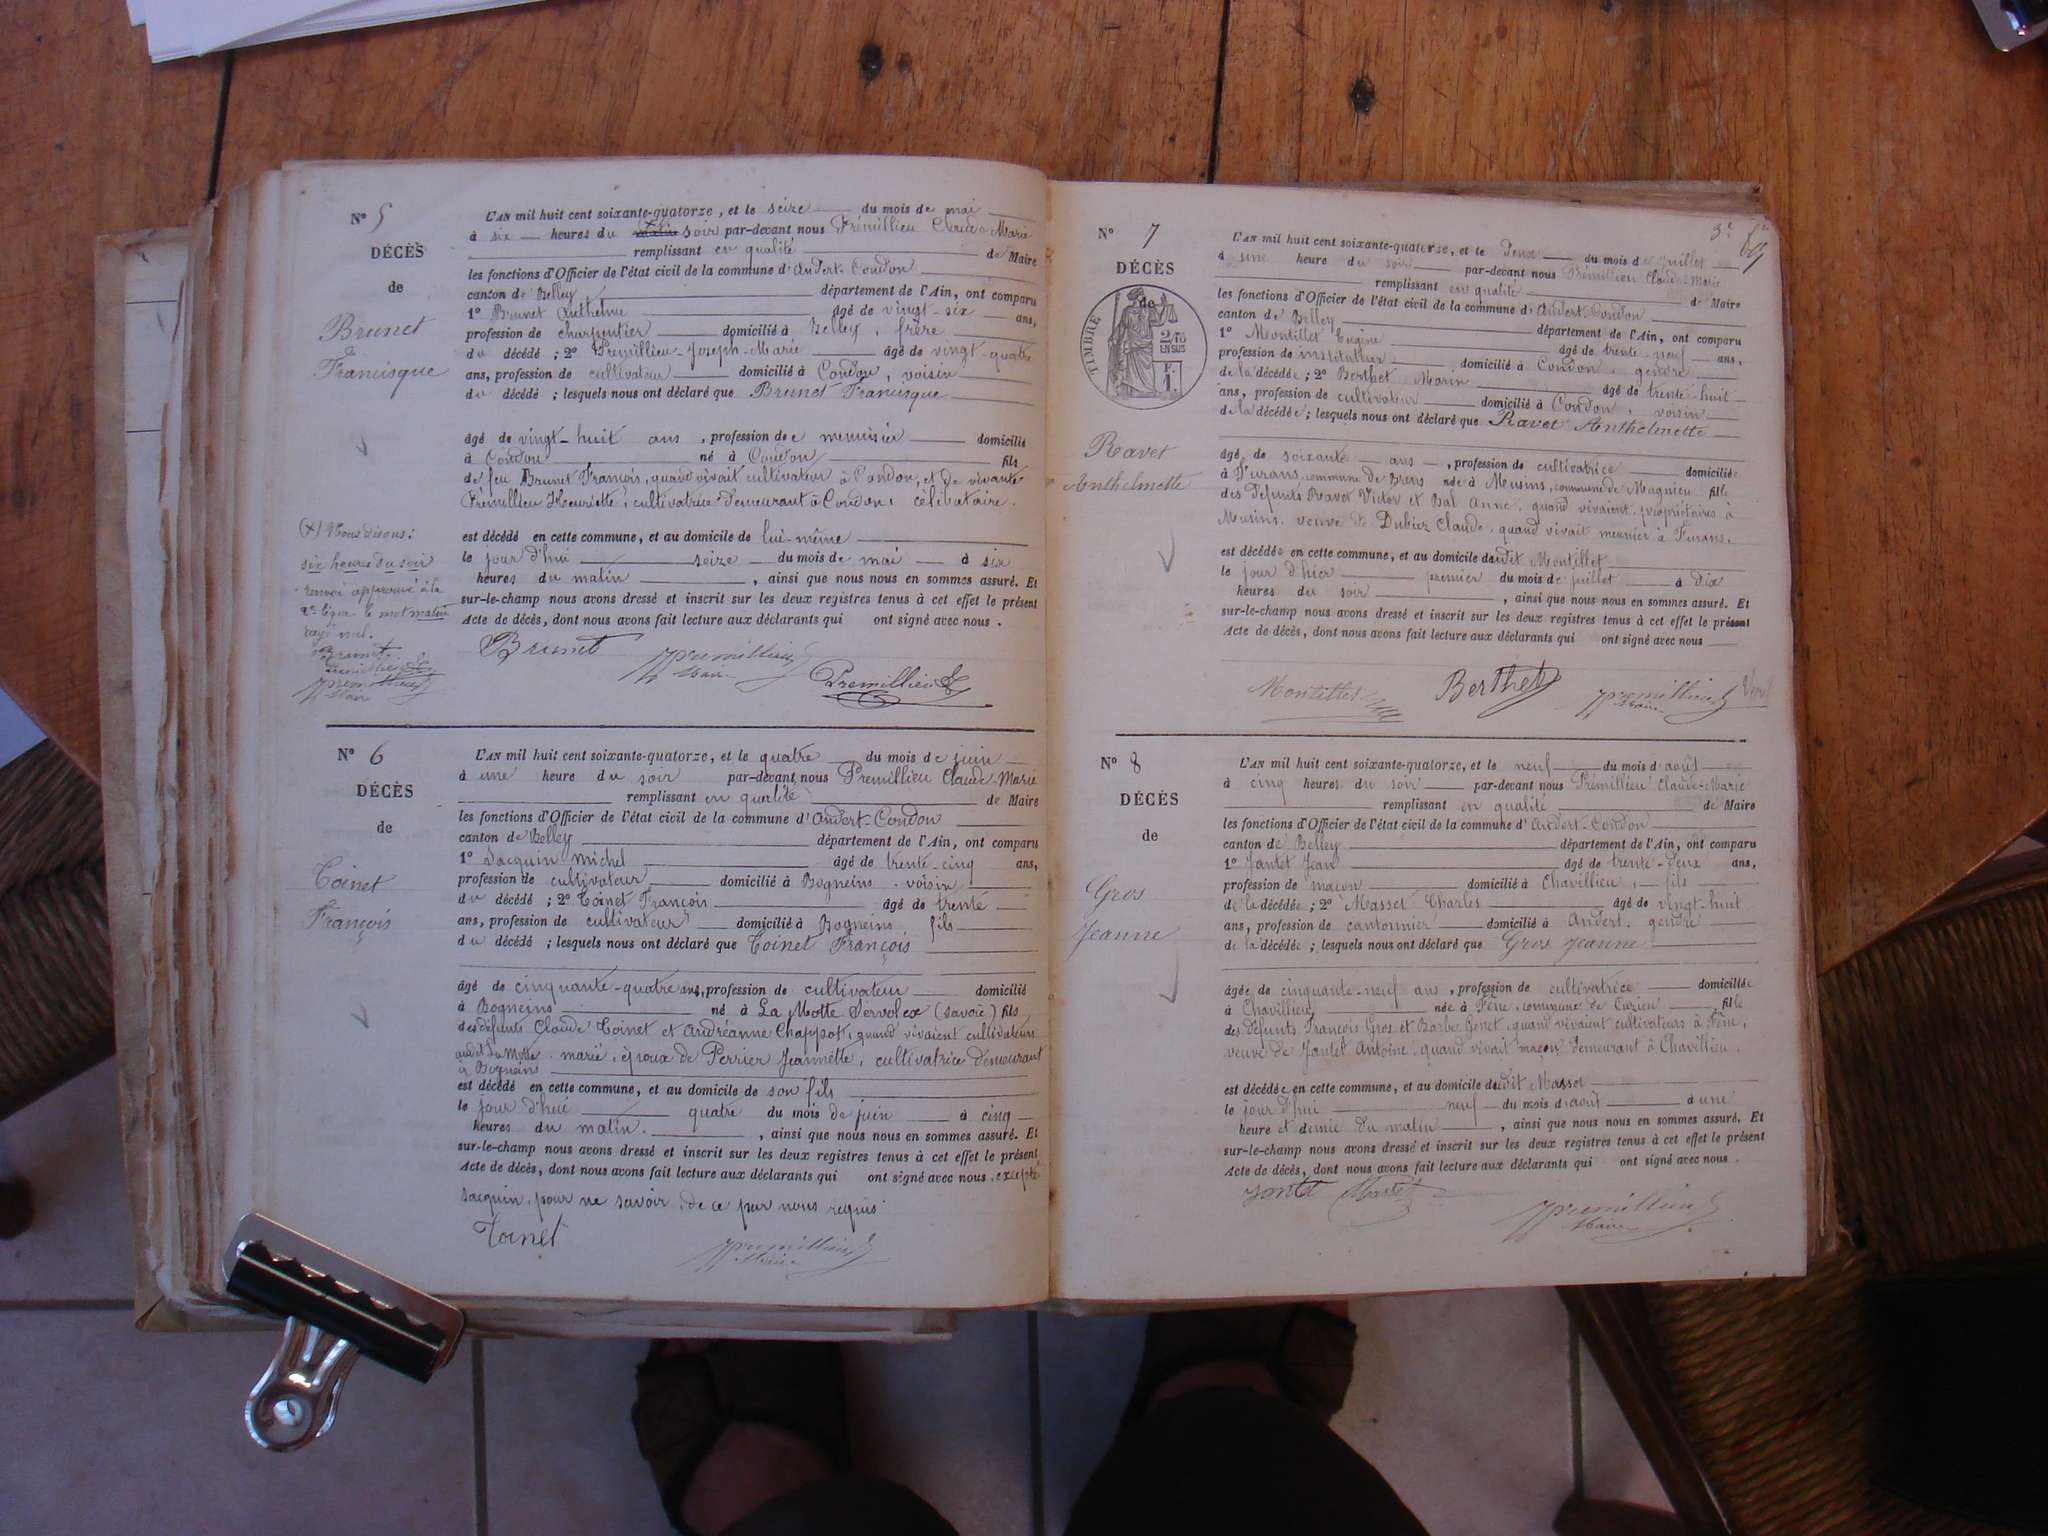 N° 5
DÉCÈS
de
Brunet
Francisque
L'AN mil huit cent soixante-quatorze, et le seize du mois de mai
à six heures du matin soir par-devant nous Prémillieu Claude-Marie
remplissant en qualité de Maire
les fonctions d'Officier de l'état civil de la commune d'Andert-Condon
canton de Belley département de l'Ain, ont comparu
1° Brunet Anthelme âgé de vingt-six ans,
profession de charpentier domicilié à Belley, frère
du décédé ; 2° Premillieu-Joseph-Marie âgé de vingt-quatre
ans, profession de cultivateur domicilié à Condon, voisin
du décédé ; lesquels nous ont déclaré que Brunet Francisque
âgé de vingt-huit ans, profession de menuisier domicilié
à Condon né à Condon fils
de feu Brunet François, quand vivait cultivateur à Condon, et de vivante
Prémillieu Henriette, cultivatrice demeurant à Condon, célibataire.
est décédé en cette commune, et au domicile de lui-même
le jour d'hui seize du mois de mai à six
heures du matin, ainsi que nous nous en sommes assuré. Et
sur-le-champ nous avons dressé et inscrit sur les deux registres tenus à cet effet le présent
Acte de décès, dont nous avons fait lecture aux déclarants qui ont signé avec nous.
(x) Nous disons:
six heures du soir
renvoi approuvé à la
2e ligne le mot matin
rayé nul.
Brunet
Premillieu
Premillieu
Maire
Brunet
Premillieu
Maire
Premillieu
N° 6
DÉCÈS
de
Toinet
François
L'AN mil huit cent soixante-quatorze, et le quatre du mois de juin
à une heure du soir par-devant nous Premillieu Claude-Marie
remplissant en qualité de Maire
les fonctions d'Officier de l'état civil de la commune d'Andert-Condon
canton de Belley département de l'Ain, ont comparu
1° Jacquin Michel âgé de trente-cinq ans,
profession de cultivateur domicilié à Bogneins, voisin
du décédé ; 2° Toinet François âgé de trente
ans, profession de cultivateur domicilié à Bogneins fils
du décédé ; lesquels nous ont déclaré que Toinet François
âgé de cinquante-quatre ans, profession de cultivateur domicilié
à Bogneins né à La Motte Servolex (Savoie) fils
des défunts Claude Toinet et Andréanne Chappot, quand vivaient cultivateurs
audit La Motte. marié, époux de Perrier Jeannette, cultivatrice demeurant
à Bogneins
est décédé en cette commune, et au domicile de son fils
le jour d'hui quatre du mois de juin à cinq
heures du matin., ainsi que nous nous en sommes assuré. Et
sur-le-champ nous avons dressé et inscrit sur les deux registres tenus à cet effet le présent
Acte de décès, dont nous avons fait lecture aux déclarants qui ont signé avec nous, excepté
Jacquin, pour ne savoir, de ce par nous requis
Toinet
Premillieu
Maire
3e
N° 7
DÉCÈS
de
TIMBRE
2/10
EN SUS
F.
1.
Ravet
Anthelmette
L'AN mil huit cent soixante-quatorze, et le deux du mois de juillet
à une heure du soir par-devant nous Prémillieu Claude-Marie
remplissant en qualité de Maire
les fonctions d'Officier de l'état civil de la commune d'Andert-Condon
canton de Belley département de l'Ain, ont comparu
1° Montillet Eugène âgé de trente-neuf ans,
profession de instituteur domicilié à Condon, gendre
de la décédée ; 2° Berthet Marin âgé de trente-huit
ans, profession de cultivateur domicilié à Condon, voisin
de la décédée ; lesquels nous ont déclaré que Ravet Anthelmette
âgée de soixante ans, profession de cultivatrice domiciliée
à Furans, commune de Brens née à Musins, commune de Magnieu fille
des défunts Ravet Victor et Bal Anne, quand vivaient propriétaires à
Musins, veuve de Dubiez Claude, quand vivait meunier à Furans.
est décédée en cette commune, et au domicile dudit Montillet
le jour d'hier premier du mois de juillet à dix
heures du soir, ainsi que nous nous en sommes assuré. Et
sur-le-champ nous avons dressé et inscrit sur les deux registres tenus à cet effet le présent
Acte de décès, dont nous avons fait lecture aux déclarants qui ont signé avec nous
Montillet
Berthet
Premillieu
Maire
N° 8
DÉCÈS
de
Gros
Jeanne
L'AN mil huit cent soixante-quatorze, et le neuf du mois d'août
à cinq heures du soir par-devant nous Prémillieu Claude-Marie
remplissant en qualité de Maire
les fonctions d'Officier de l'état civil de la commune d'Andert-Condon
canton de Belley département de l'Ain, ont comparu
1° Jantet Jean âgé de trente-deux ans,
profession de maçon domicilié à Chavillieu, fils
de la décédée ; 2° Masset Charles âgé de vingt-huit
ans, profession de cantonnier domicilié à Andert, gendre
de la décédée ; lesquels nous ont déclaré que Gros Jeanne
âgée de cinquante-neuf ans, profession de cultivatrice domiciliée
à Chavillieu née à Fêne, commune de Cuzieu fille
des défunts François Gros et Barbe Genet, quand vivaient cultivateurs à Fêne,
veuve de Jantet Antoine, quand vivait maçon demeurant à Chavillieu.
est décédée en cette commune, et au domicile dudit Masset
le jour d'hui neuf du mois d'août à une
heure et demie du matin, ainsi que nous nous en sommes assuré. Et
sur-le-champ nous avons dressé et inscrit sur les deux registres tenus à cet effet le présent
Acte de décès, dont nous avons fait lecture aux déclarants qui ont signé avec nous.
Jantet
Masset
Premillieu
Maire